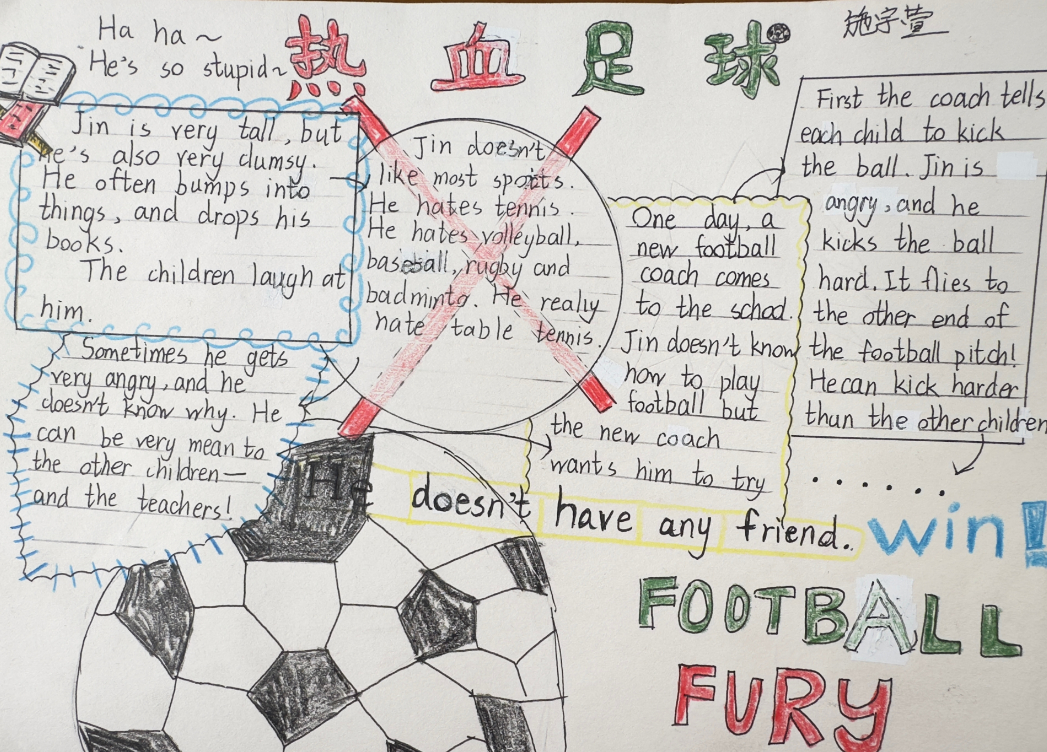 Ha ha~
He's so stupid~
热血足球
施宇萱
Jin is very tall, but
he's also very clumsy.
He often bumps into
things, and drops his
books.
The children laugh at
him.
Sometimes he gets
very angry, and he
doesn't know why. He
can be very mean to
the other children—
and the teachers!
Jin doesn't
like most sports.
He hates tennis.
He hates volleyball,
baseball, rugby and
badminto. He really
hate table tennis.
He doesn't have any friend.
One day, a
new football
coach comes
to the school.
Jin doesn't know
how to play
football but
the new coach
wants him to try
First the coach tells
each child to kick
the ball. Jin is
angry, and he
kicks the ball
hard. It flies to
the other end of
the football pitch!
He can kick harder
than the other children
......
win!
FOOTBALL
FURY